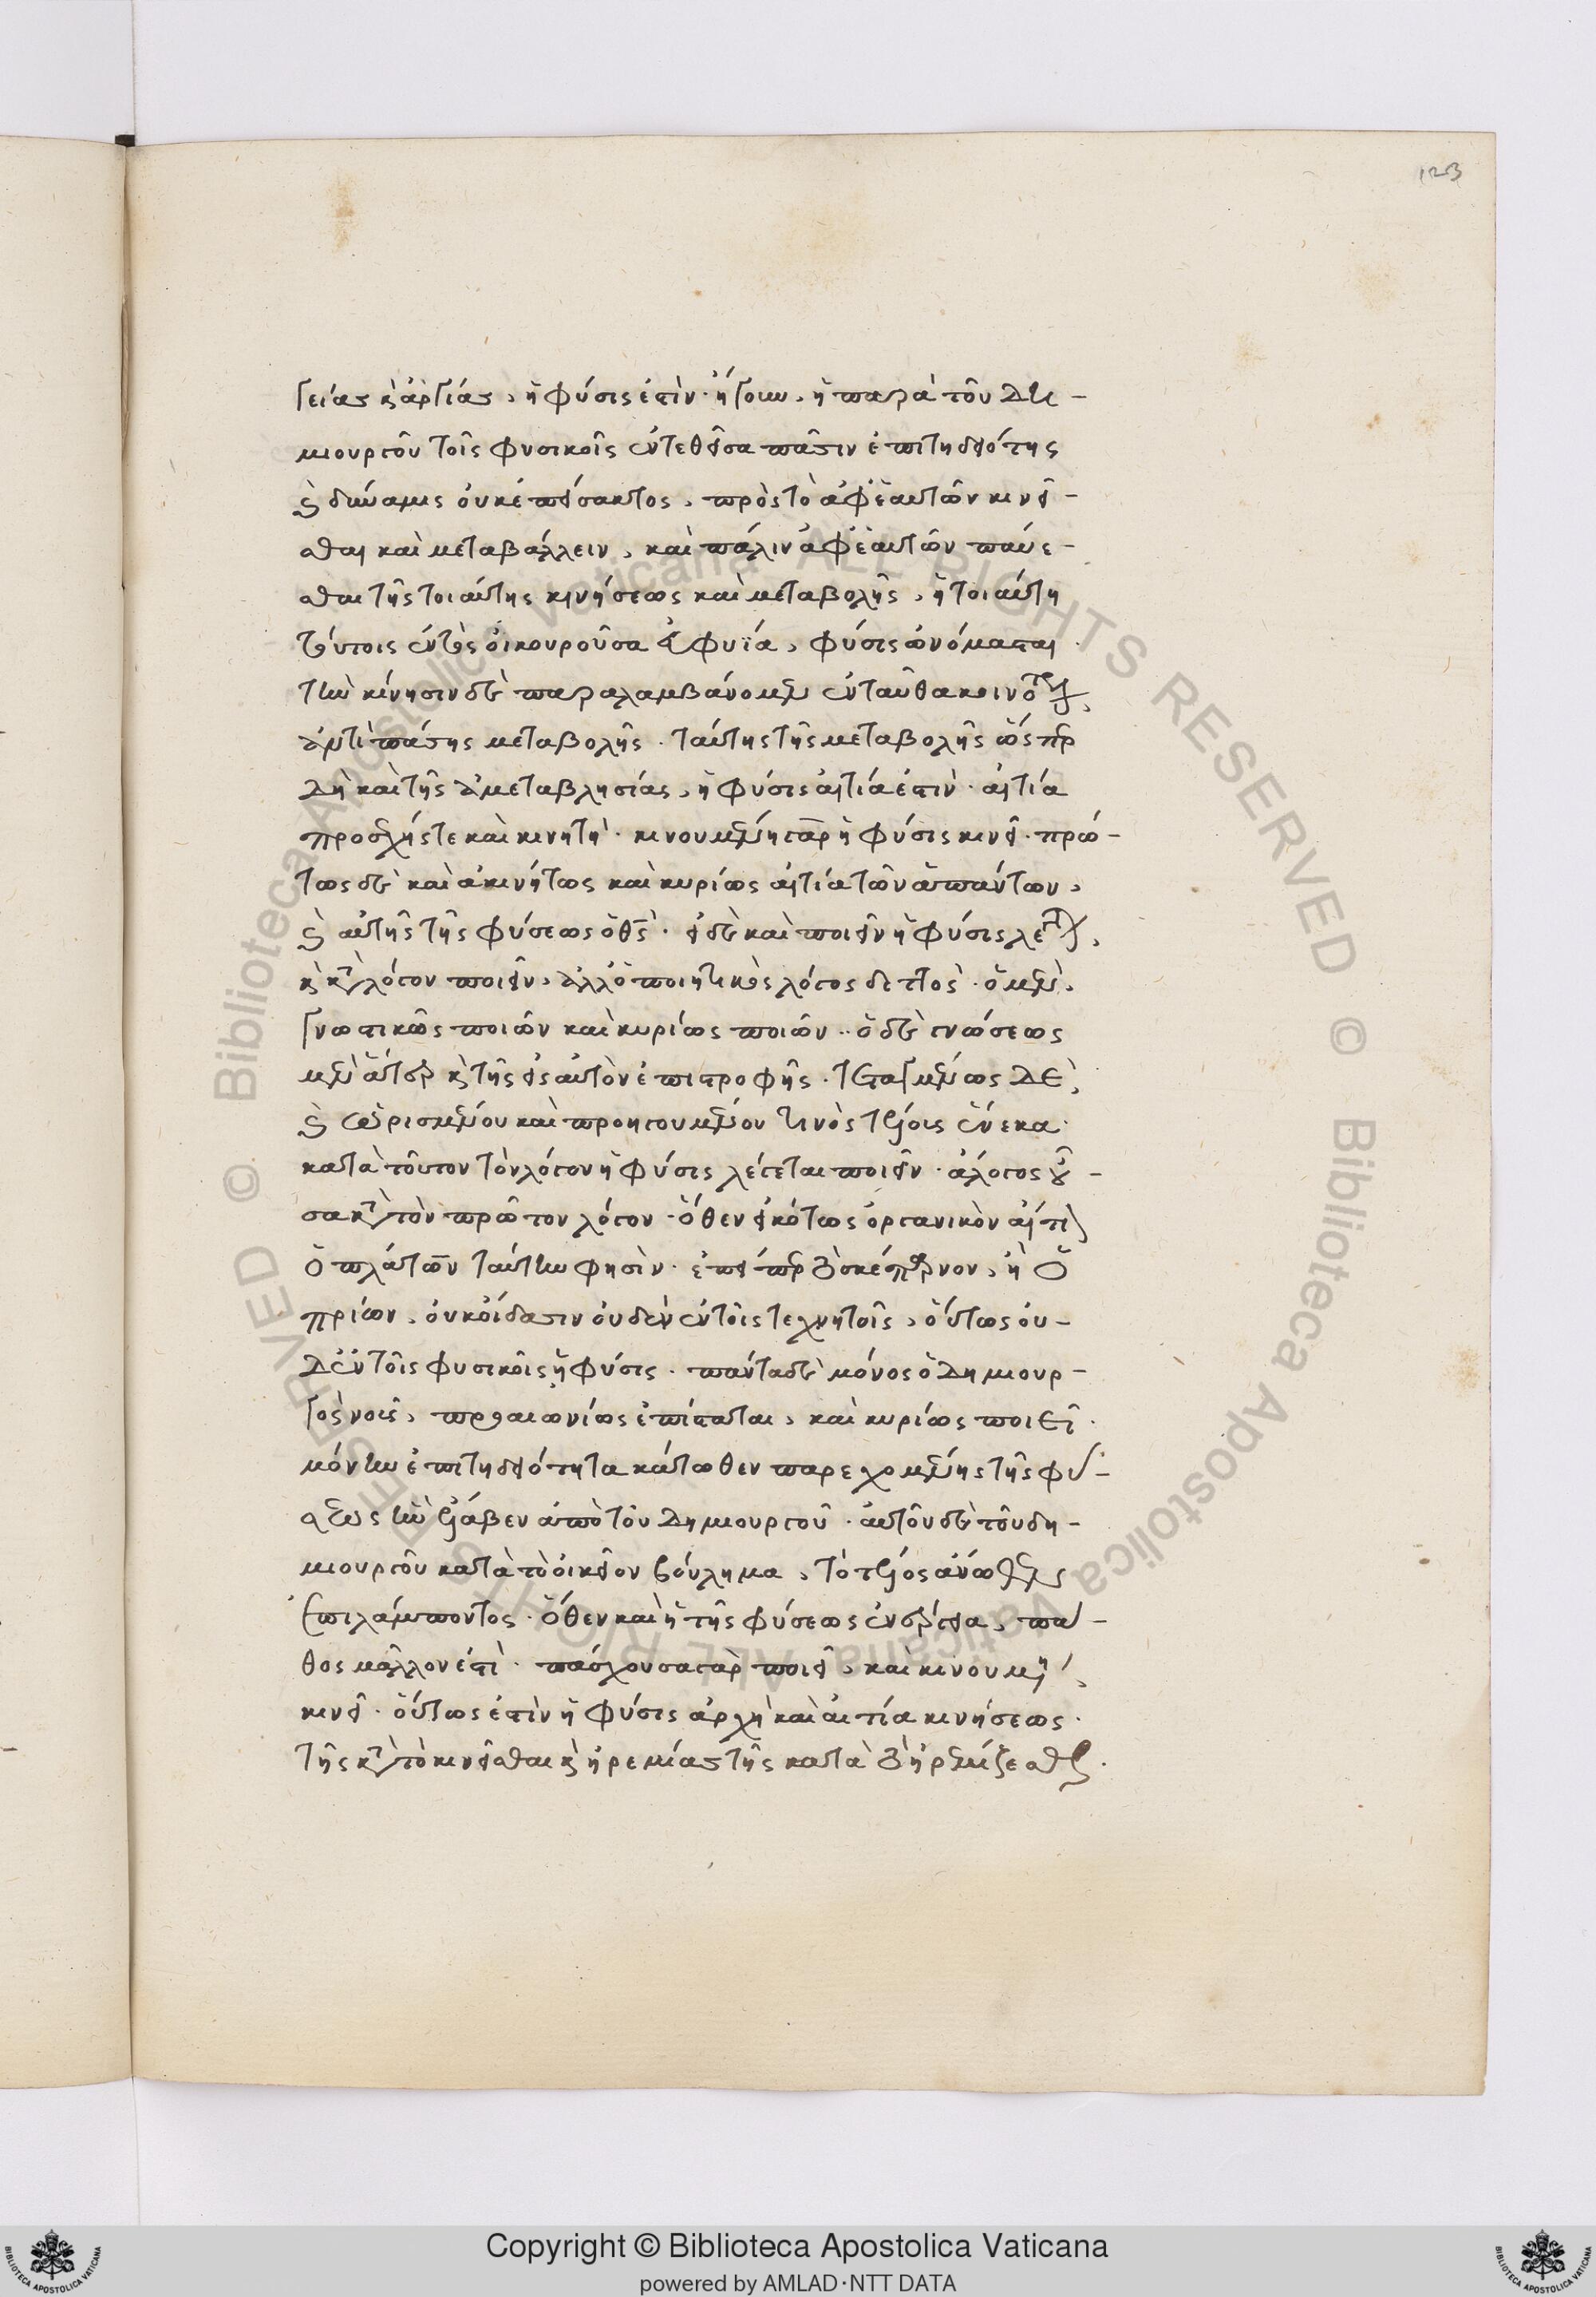 123
γείας κ(αὶ) ἀργίας, ἡ φύσις ἐστίν· ἤγουν, ἡ παρὰ τοῦ Δη-
μιουργοῦ τοῖς φυσικοῖς ἐντεθεῖσα πᾶσιν ἐπιτηδειότης
κ(αὶ) δύναμις οὐκ ἐπείσακτος, πρὸς τὸ ἀφ' ἑαυτῶν κινεῖ-
σθαι καὶ μεταβάλλειν, καὶ πάλιν ἀφ' ἑαυτῶν παύε-
σθαι τῆς τοιαύτης κινήσεως καὶ μεταβολῆς, ἡ τοιαύτη
τούτοις ἐντὸς οἰκουροῦσα εὐφυΐα, φύσις ὠνόμασται·
τὴν κίνησιν δὲ παραλαμβάνομεν ἐνταῦθα κοινότερον,
ἀντὶ πάσης μεταβολῆς· ταύτης τῆς μεταβολῆς ὥσπερ
δὴ καὶ τῆς ἀμεταβλησίας, ἡ φύσις αἰτία ἐστίν· αἰτία
προσεχής τε καὶ κινητή· κινουμένη γὰρ ἡ φύσις κινεῖ· πρώ-
τως δὲ καὶ ἀκινήτως καὶ κυρίως αἰτία τῶν ἁπάντων,
κ(αὶ) αὐτῆς τῆς φύσεως ὁ θς· εἰ δὲ καὶ ποιεῖν ἡ φύσις λέγεται,
κ(αὶ) κατὰ λόγον ποιεῖν, ἀλλ' ὁ ποιητικὸς λόγος διττός· ὁ μὲν,
γνωστικῶς ποιῶν καὶ κυρίως ποιῶν·· ὁ δὲ γνώσεως
μὲν ἄτερ κ(αὶ) τῆς εἰς αὐτὸν ἐπιστροφῆς· τεταγμένως δὲ,
κ(αὶ) ὡρισμένου καὶ προηγουμένου τινὸς τέλους ἕνεκα·
κατὰ τοῦτον τὸν λόγον ἡ φύσις λέγεται ποιεῖν· ἄλογος οὖ-
σα κατὰ τὸν πρῶτον λόγον· ὅθεν εἰκότως ὀργανικὸν αἴτιον
ὁ πλάτων ταύτην φησίν· ἐπείπερ τὸ σκέπαρνον, ἢ ὁ
πρίων, οὐκ οἴδασιν οὐδὲν ἐν τοῖς τεχνητοῖς, οὕτως οὐ-
δ' ἐν τοῖς φυσικοῖς ἡ φύσις· πάντα δὲ μόνος ὁ Δημιουρ-
γὸς νοεῖ, προαιωνίως ἐπίσταται, καὶ κυρίως ποιεῖ·
μόνην ἐπιτηδειότητα κάτωθεν παρεχομένης τῆς φύ-
σεως ἣν ἔλαβεν ἀπὸ τοῦ Δημιουργοῦ· αὐτοῦ δὲ τοῦ δη-
μιουργοῦ κατὰ τὸ οἰκεῖον βούλημα, τὸ τέλος ἄνωθεν
ἐπιλάμποντος· ὅθεν καὶ ἡ τῆς φύσεως ἐνέργεια, πά-
θος μᾶλλον ἐστί· πάσχουσα γὰρ ποιεῖ, καὶ κινουμένη,
κινεῖ· οὕτως ἐστὶν ἡ φύσις ἀρχὴ καὶ αἰτία κινήσεως·
τῆς κατὰ τὸ κινεῖσθαι κ(αὶ) ἠρεμίας τῆς κατὰ τὸ ἠρεμίζεσθαι·
Copyright © Biblioteca Apostolica Vaticana
powered by AMLAD·NTT DATA
© Biblioteca Apostolica Vaticana ALL RIGHTS RESERVED © Biblioteca Apostolica Vaticana ALL RIGHTS RESERVED
BIBLIOTECA APOSTOLICA VATICANA
BIBLIOTECA APOSTOLICA VATICANA